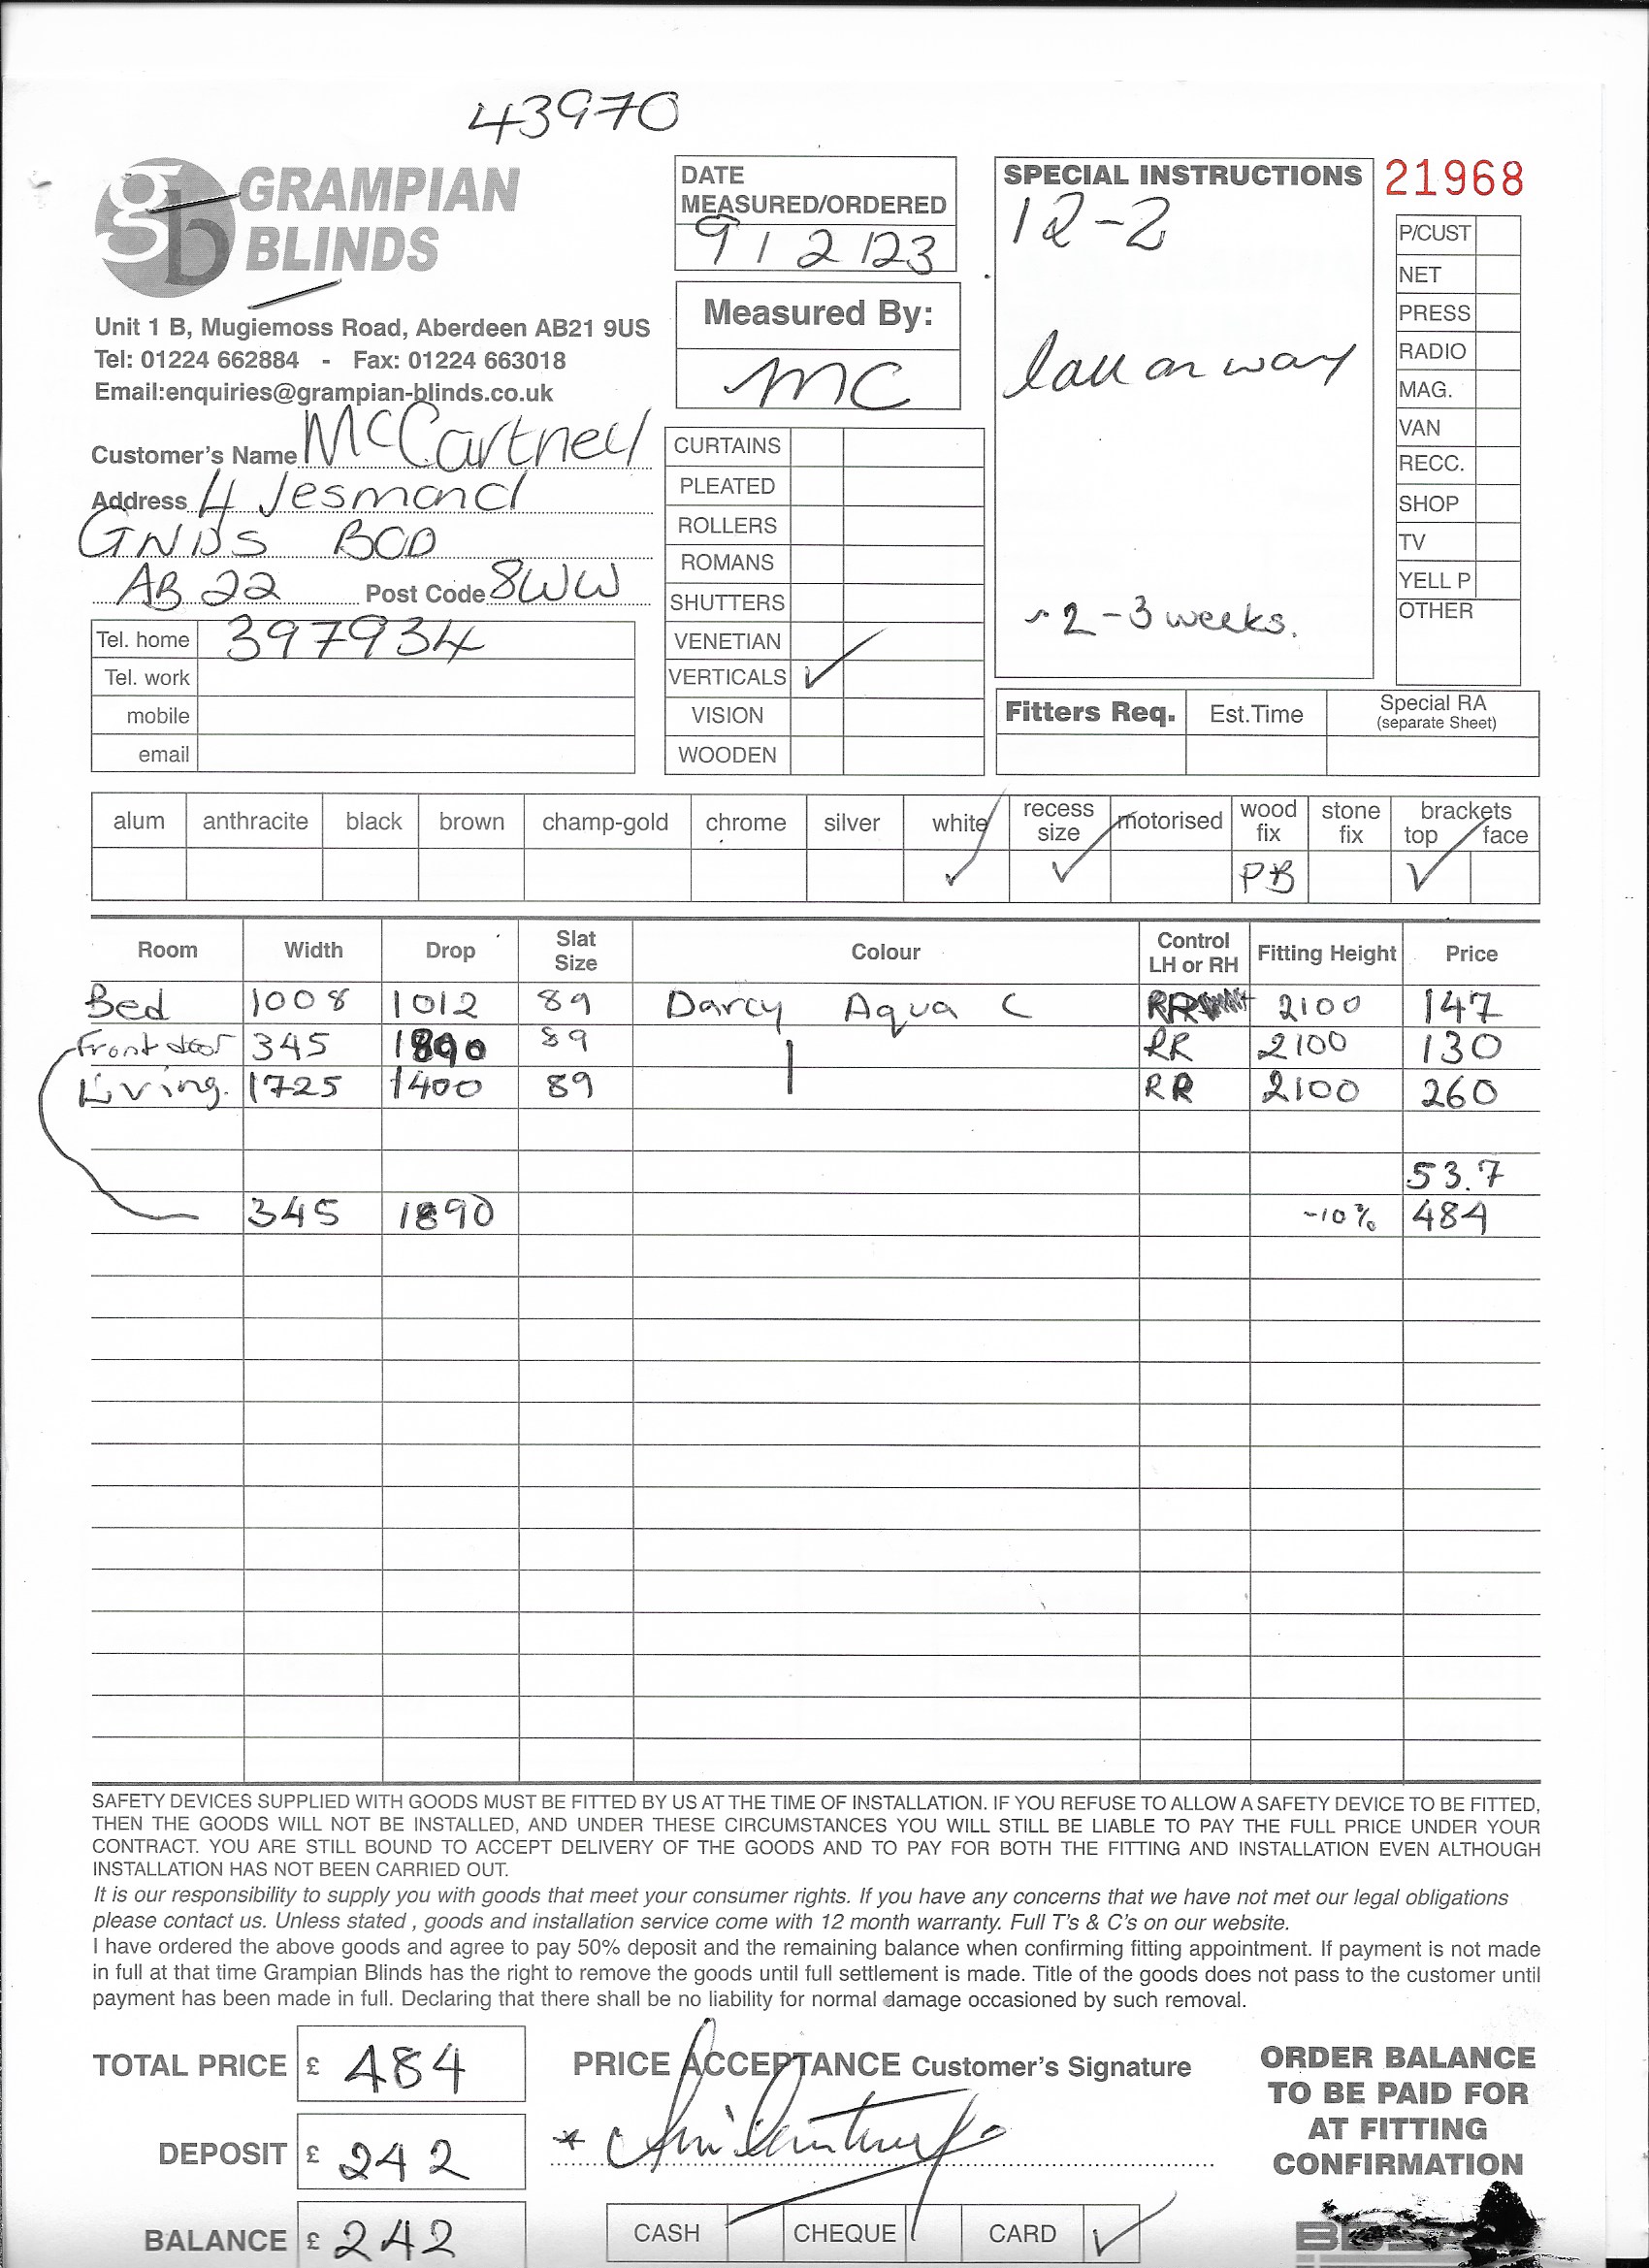 43970
gb GRAMPIAN
BLINDS
Unit 1 B, Mugiemoss Road, Aberdeen AB21 9US
Tel: 01224 662884 - Fax: 01224 663018
Email:enquiries@grampian-blinds.co.uk
Customer's Name McCartney
Address 4 Jesmond
GNDS BOD
AB22 Post Code 8WW
Tel. home 397934
Tel. work
mobile
email
DATE
MEASURED/ORDERED
9/2/23
Measured By:
MC
CURTAINS
PLEATED
ROLLERS
ROMANS
SHUTTERS
VENETIAN
VERTICALS ✓
VISION
WOODEN
SPECIAL INSTRUCTIONS
12-2
on way
~2-3 weeks.
21968
P/CUST
NET
PRESS
RADIO
MAG.
VAN
RECC.
SHOP
TV
YELL P
OTHER
Fitters Req. Est.Time Special RA
(separate Sheet)
alum anthracite black brown champ-gold chrome silver white recess size motorised wood fix stone fix brackets top face
✓ ✓ PB ✓
Room Width Drop Slat Size Colour Control LH or RH Fitting Height Price
Bed 1008 1012 89 Darcy Aqua C RR 2100 147
Front door 345 1890 89 | RR 2100 130
Living. 1725 1400 89 RR 2100 260
53.7
345 1890 -10% 484
SAFETY DEVICES SUPPLIED WITH GOODS MUST BE FITTED BY US AT THE TIME OF INSTALLATION. IF YOU REFUSE TO ALLOW A SAFETY DEVICE TO BE FITTED,
THEN THE GOODS WILL NOT BE INSTALLED, AND UNDER THESE CIRCUMSTANCES YOU WILL STILL BE LIABLE TO PAY THE FULL PRICE UNDER YOUR
CONTRACT. YOU ARE STILL BOUND TO ACCEPT DELIVERY OF THE GOODS AND TO PAY FOR BOTH THE FITTING AND INSTALLATION EVEN ALTHOUGH
INSTALLATION HAS NOT BEEN CARRIED OUT.
It is our responsibility to supply you with goods that meet your consumer rights. If you have any concerns that we have not met our legal obligations
please contact us. Unless stated , goods and installation service come with 12 month warranty. Full T's & C's on our website.
I have ordered the above goods and agree to pay 50% deposit and the remaining balance when confirming fitting appointment. If payment is not made
in full at that time Grampian Blinds has the right to remove the goods until full settlement is made. Title of the goods does not pass to the customer until
payment has been made in full. Declaring that there shall be no liability for normal damage occasioned by such removal.
TOTAL PRICE £ 484
DEPOSIT £ 242
BALANCE £ 242
PRICE ACCEPTANCE Customer's Signature
*
CASH CHEQUE CARD ✓
ORDER BALANCE
TO BE PAID FOR
AT FITTING
CONFIRMATION